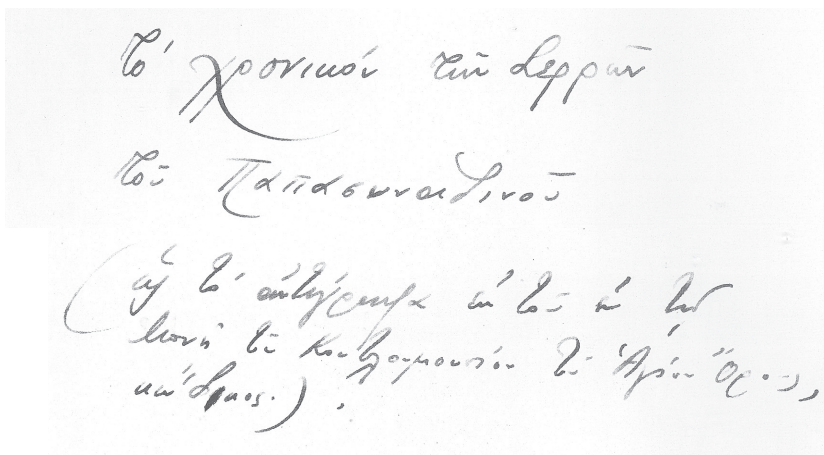 Τό χρονικόν τῶν Σερρῶν
τοῦ Παπασυναδινοῦ
τό ἀντίγραφα ἐκ τοῦ ἐν τῇ
Μονῇ τοῦ Κουτλουμουσίου τοῦ Ἁγίου Ὄρους,
κώδικος.).